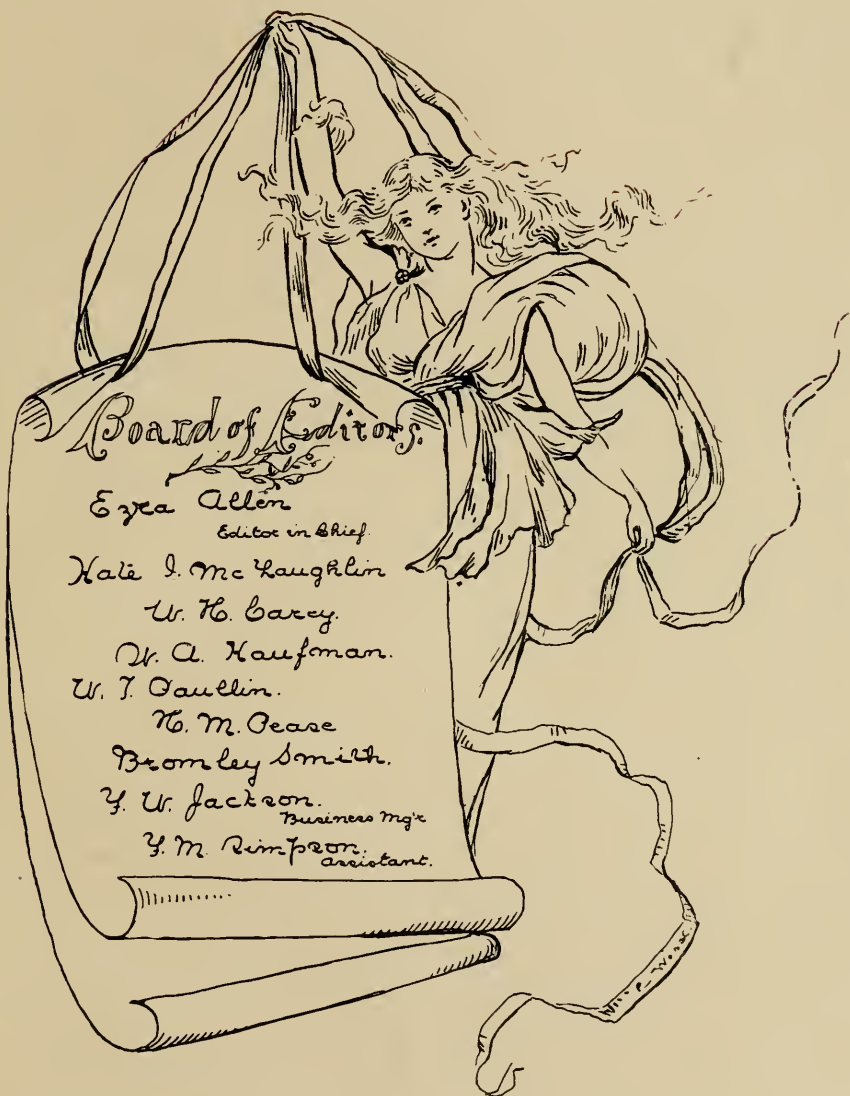 Board of Editors.
Ezra Allen
Editor in Chief.
Kate I. McLaughlin
W. H. Carey.
W. A. Kaufman.
W. T. Paullin.
H. M. Pease
Bromley Smith.
F. W. Jackson.
Business Mg'r
F. M. Simpson.
Assistant.